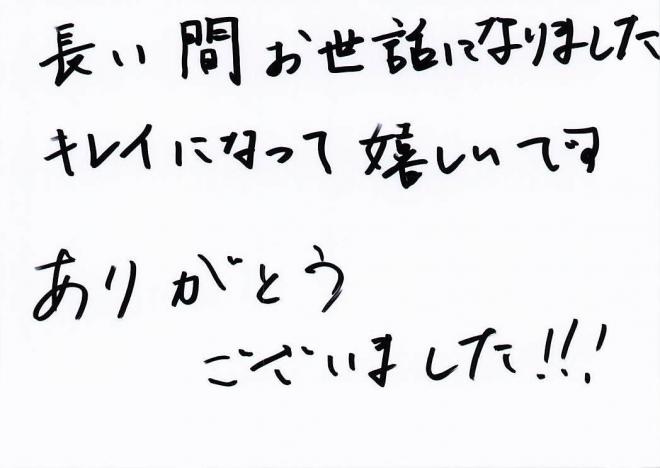 長い間お世話になりました
キレイになって嬉しいです
ありがとう
ございました!!!